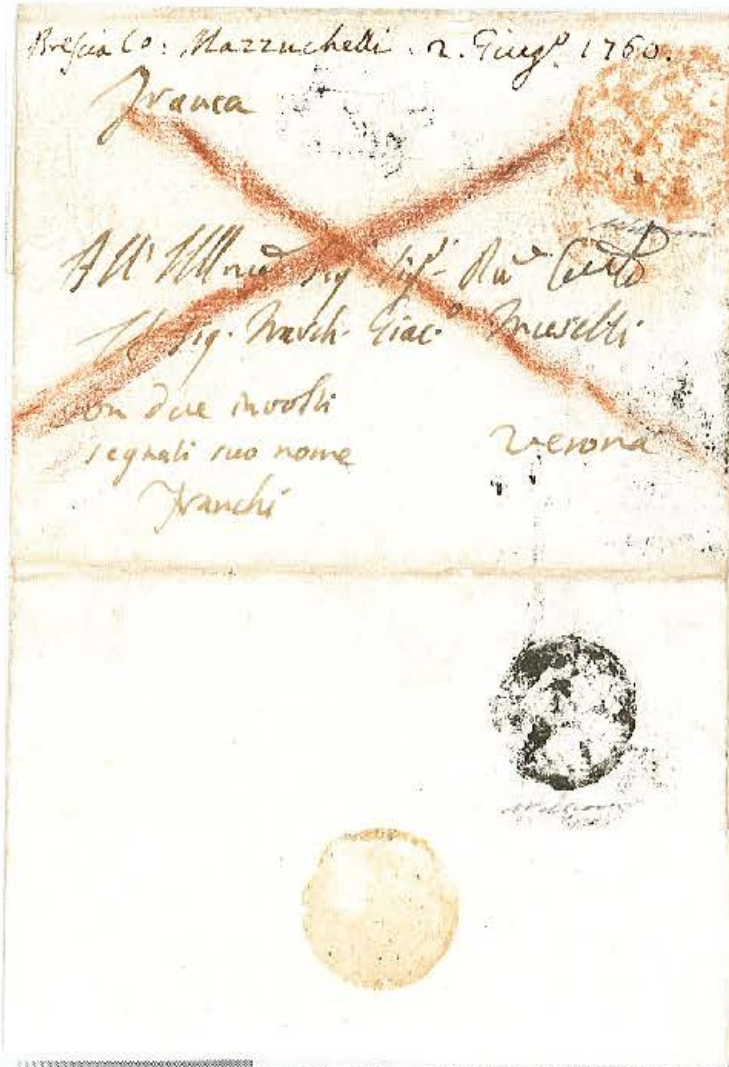 Brescia Co: Mazzuchelli. 2. Giug.º 1760.
Franca
All' Illmo Sig.r Sig.r
Il Sig. March. Giac.º Muselli
con due involti
segnati suo nome
Verona
Franchi